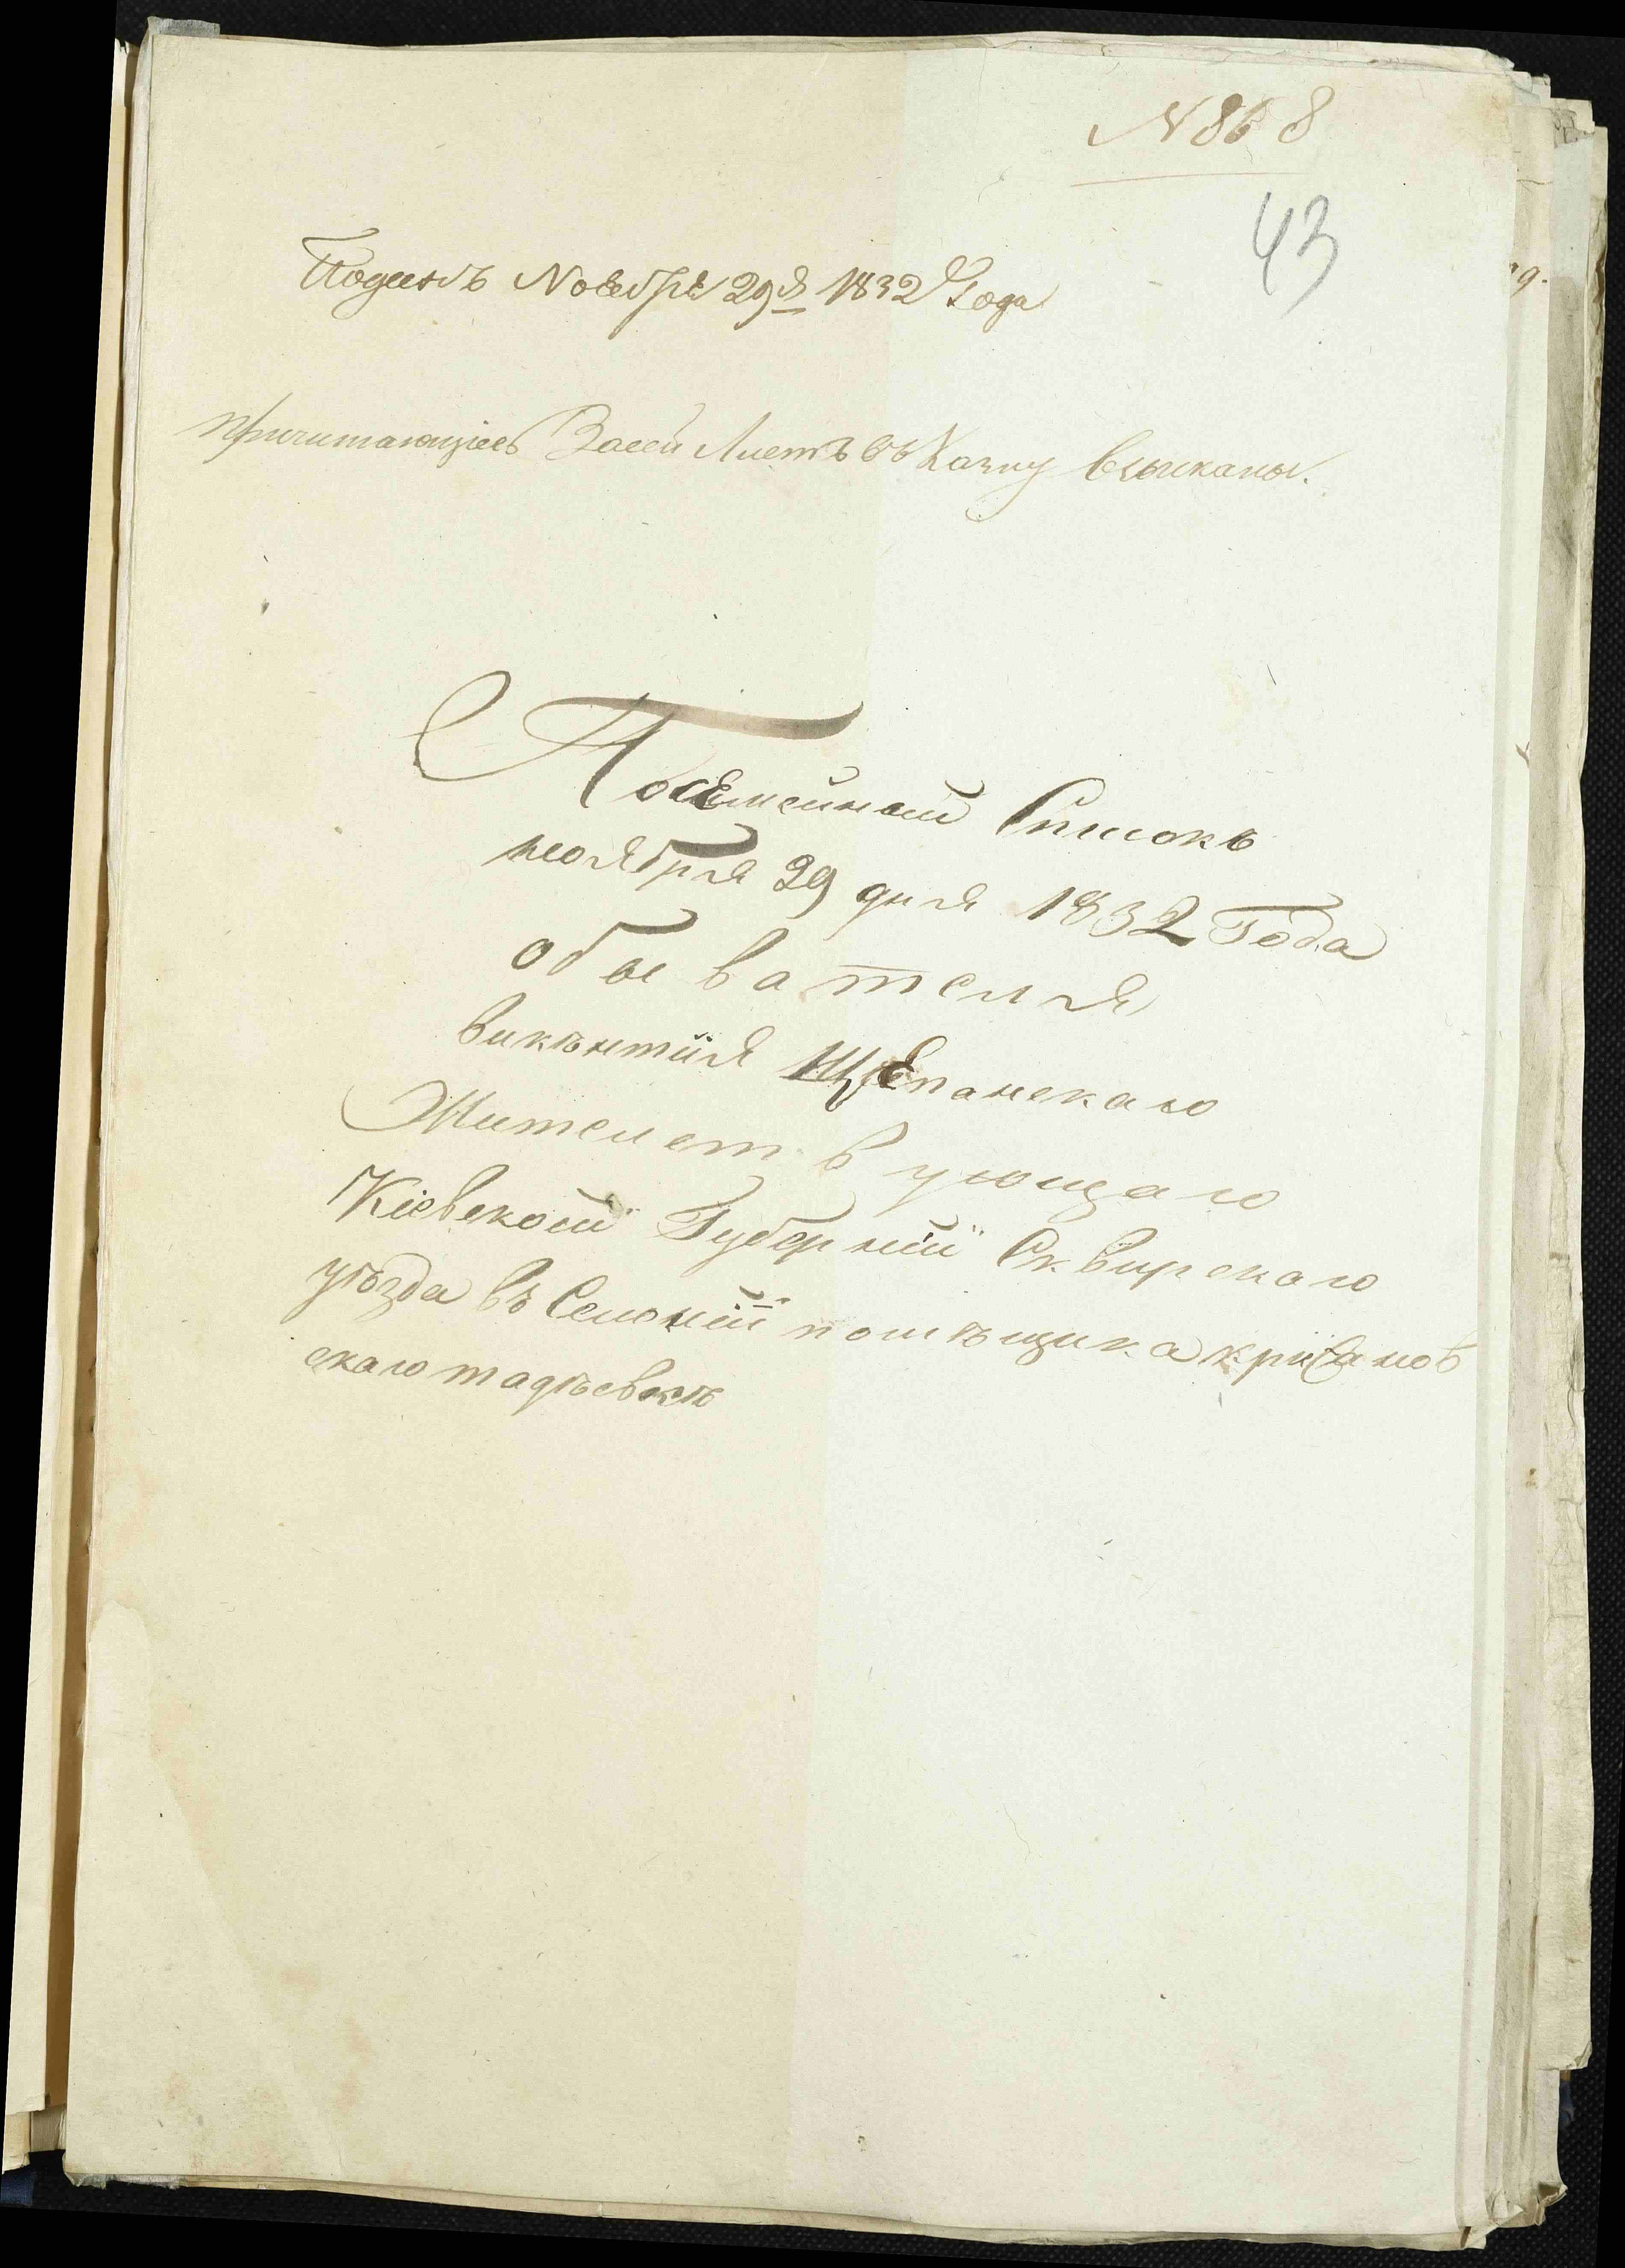 № 868
43
Поданъ Ноября 29 д 1832 Года
причитающіесь За сей Листъ въ Казну взысканы.
Посемейной Списокъ
ноября 29 дня 1832 Года
обывателя
викѣнтія Щепанскаго
Жителствующаго
Кіевской Губерніи Сквирскаго
уѣзда въ Селеніи помѣщика
скаго тадѣевкѣ